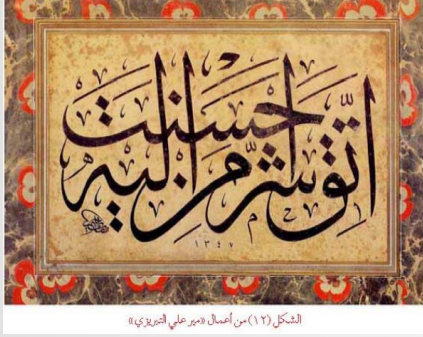 اتق شر من احسنت اليه
١٣٤٧
الشكل (١٢) من أعمال «مير علي التبريزي»